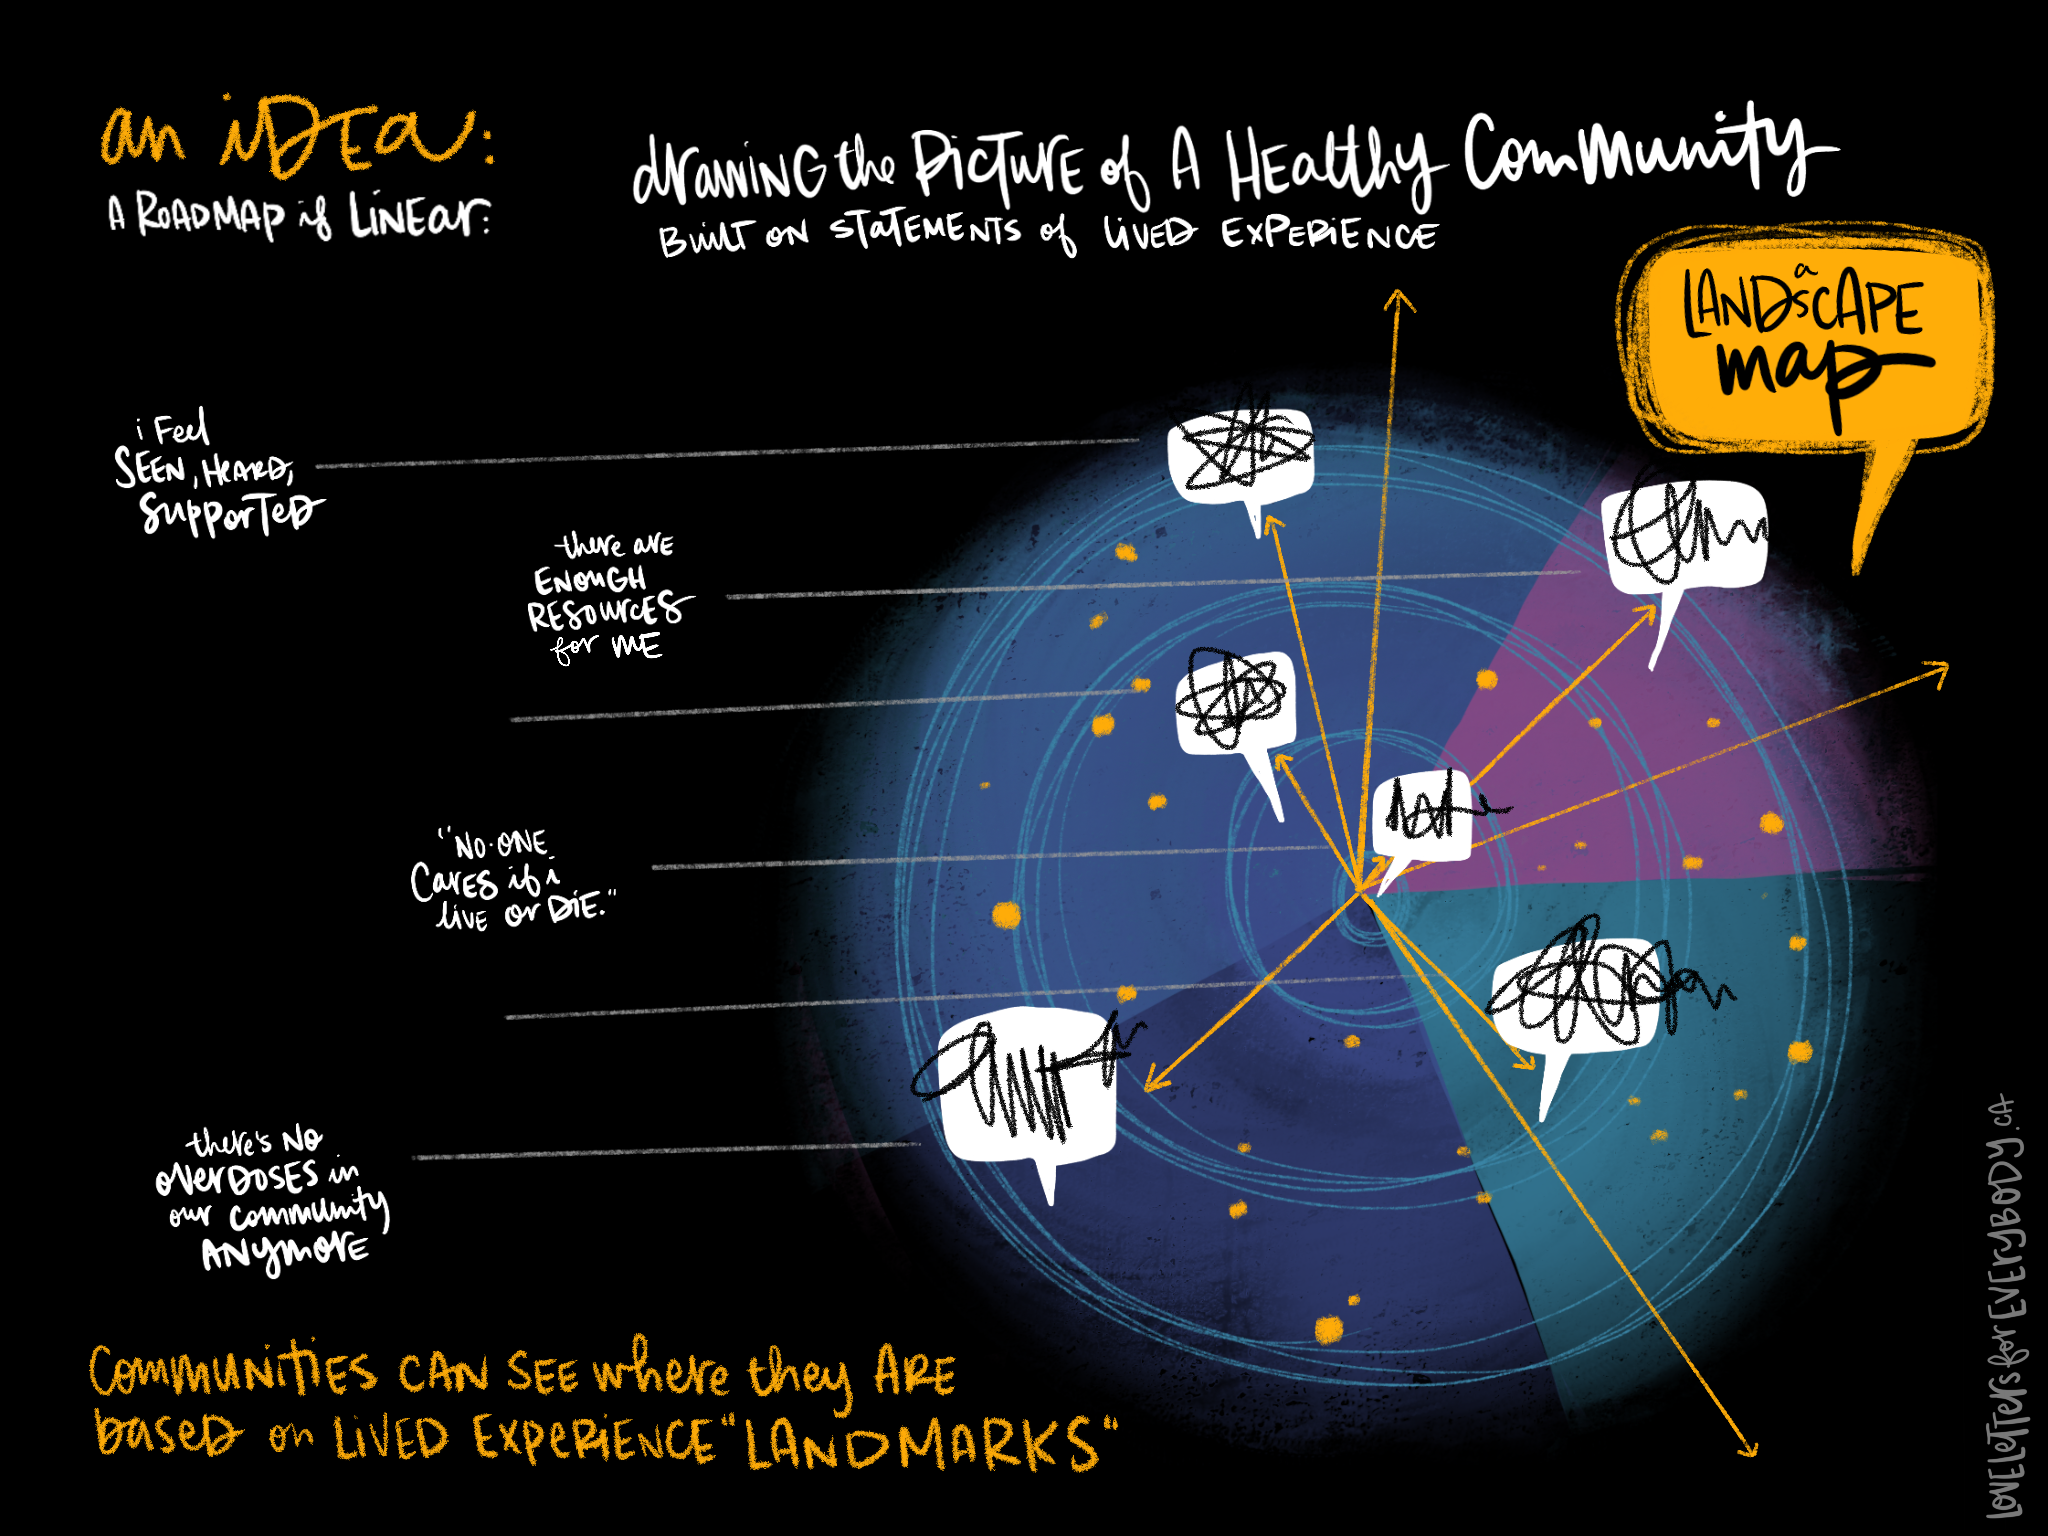 an iDEa:
A ROADMAP is LiNEar:
drawiNG the PicTURE of A HEalthy CommMunity
Built on STaTEMENTS of LIVED EXPERIENCE
a
LANDsCAPE
map
i Feel
SEEN, HEARD,
SuppOrTED
there are
ENOUGH
RESOURCES
for ME
"No·ONE
CareS if i
live or DiE."
there's NO
OVERDOSES in
our community
ANYmore
CommuniTiES CAN SEE where they ARE
basED on LiVED EXPERiENCE "LANDMARKS"
LOVELETTersforEVErYBODY.CA